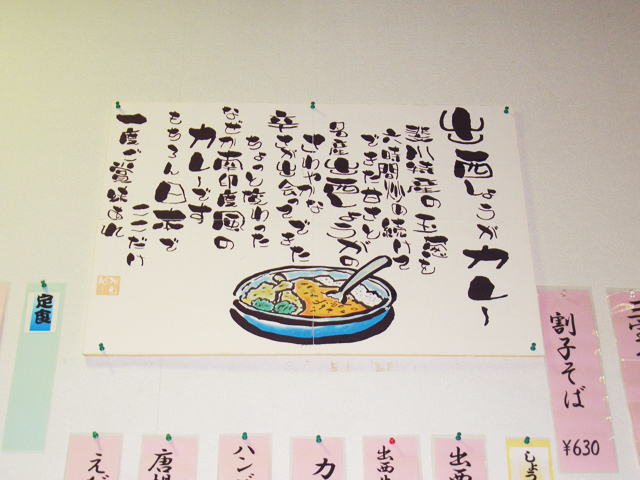 出西しょうがカレー
斐川特産の玉葱を
六時間炒め続けて
でまた甘さと
名産出西しょうがの
さわやかな
辛さが出会ってできた
ちょっと変わった
なぜか南印度風の
カレーです
もちろん日本で
ここだけ
一度ご賞味あれ
定食
割子そば
¥630
えび
唐揚
ハン
カ
出西生
出西
しょう